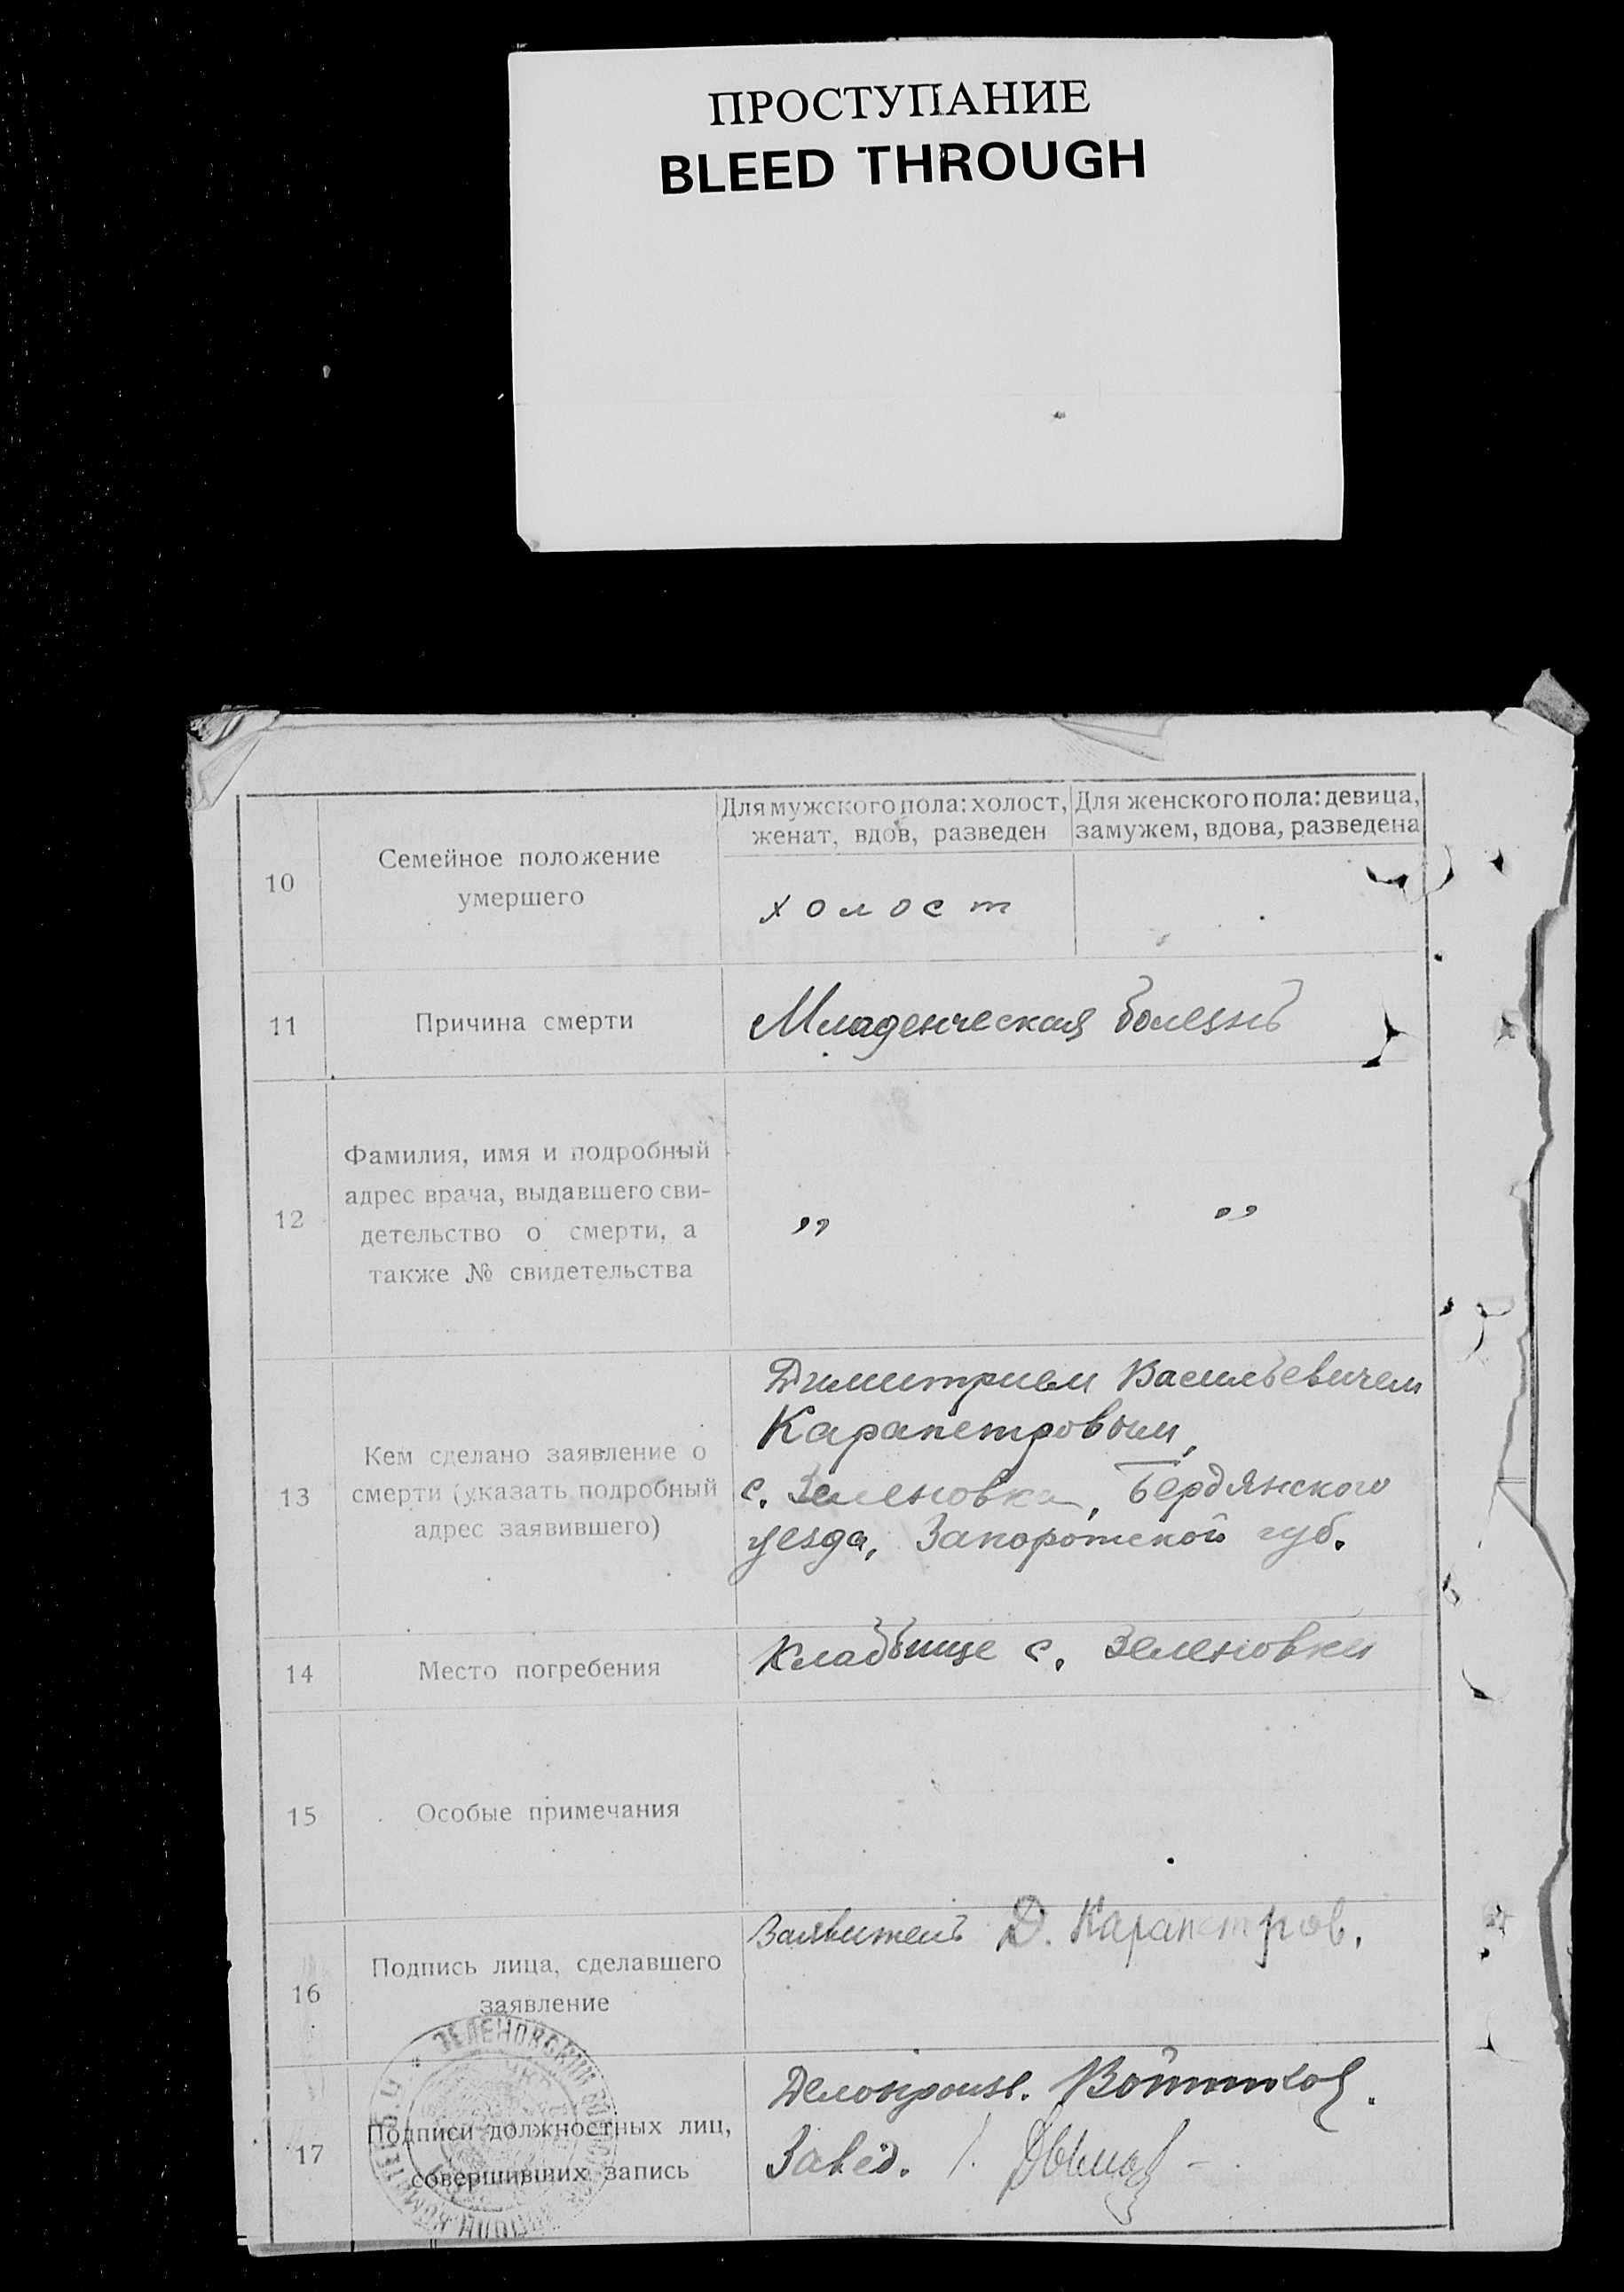 ПРОСТУПАНИЕ
BLEED THROUGH
10
Семейное положение
умершего
Для мужского пола: холост,
женат, вдов, разведен
Для женского пола: девица,
замужем, вдова, разведена
холост
11
Причина смерти
Младенческая болезнь
12
Фамилия, имя и подробный
адрес врача, выдавшего сви-
детельство о смерти, а
также № свидетельства
„ „
13
Кем сделано заявление о
смерти (указать подробный
адрес заявившего)
Димитрием Васильевичем
Карапетровым,
с. Зеленовка, Бердянского
уезда, Запорожской губ.
14
Место погребения
Кладбище с. Зеленовки
15
Особые примечания
16
Подпись лица, сделавшего
заявление
Заявитель Д. Карапетров.
17
Подписи должностных лиц,
совершивших запись
Делопроизв.
Завед.
ЗЕЛЕНОВСКИЙ